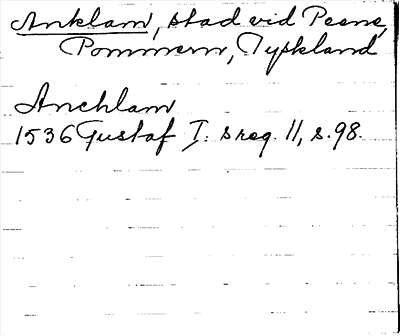 Anklam, stad vid Peene,
Pommern, Tyskland
Anchlam
1536 Gustaf I: s reg. 11, s. 98.